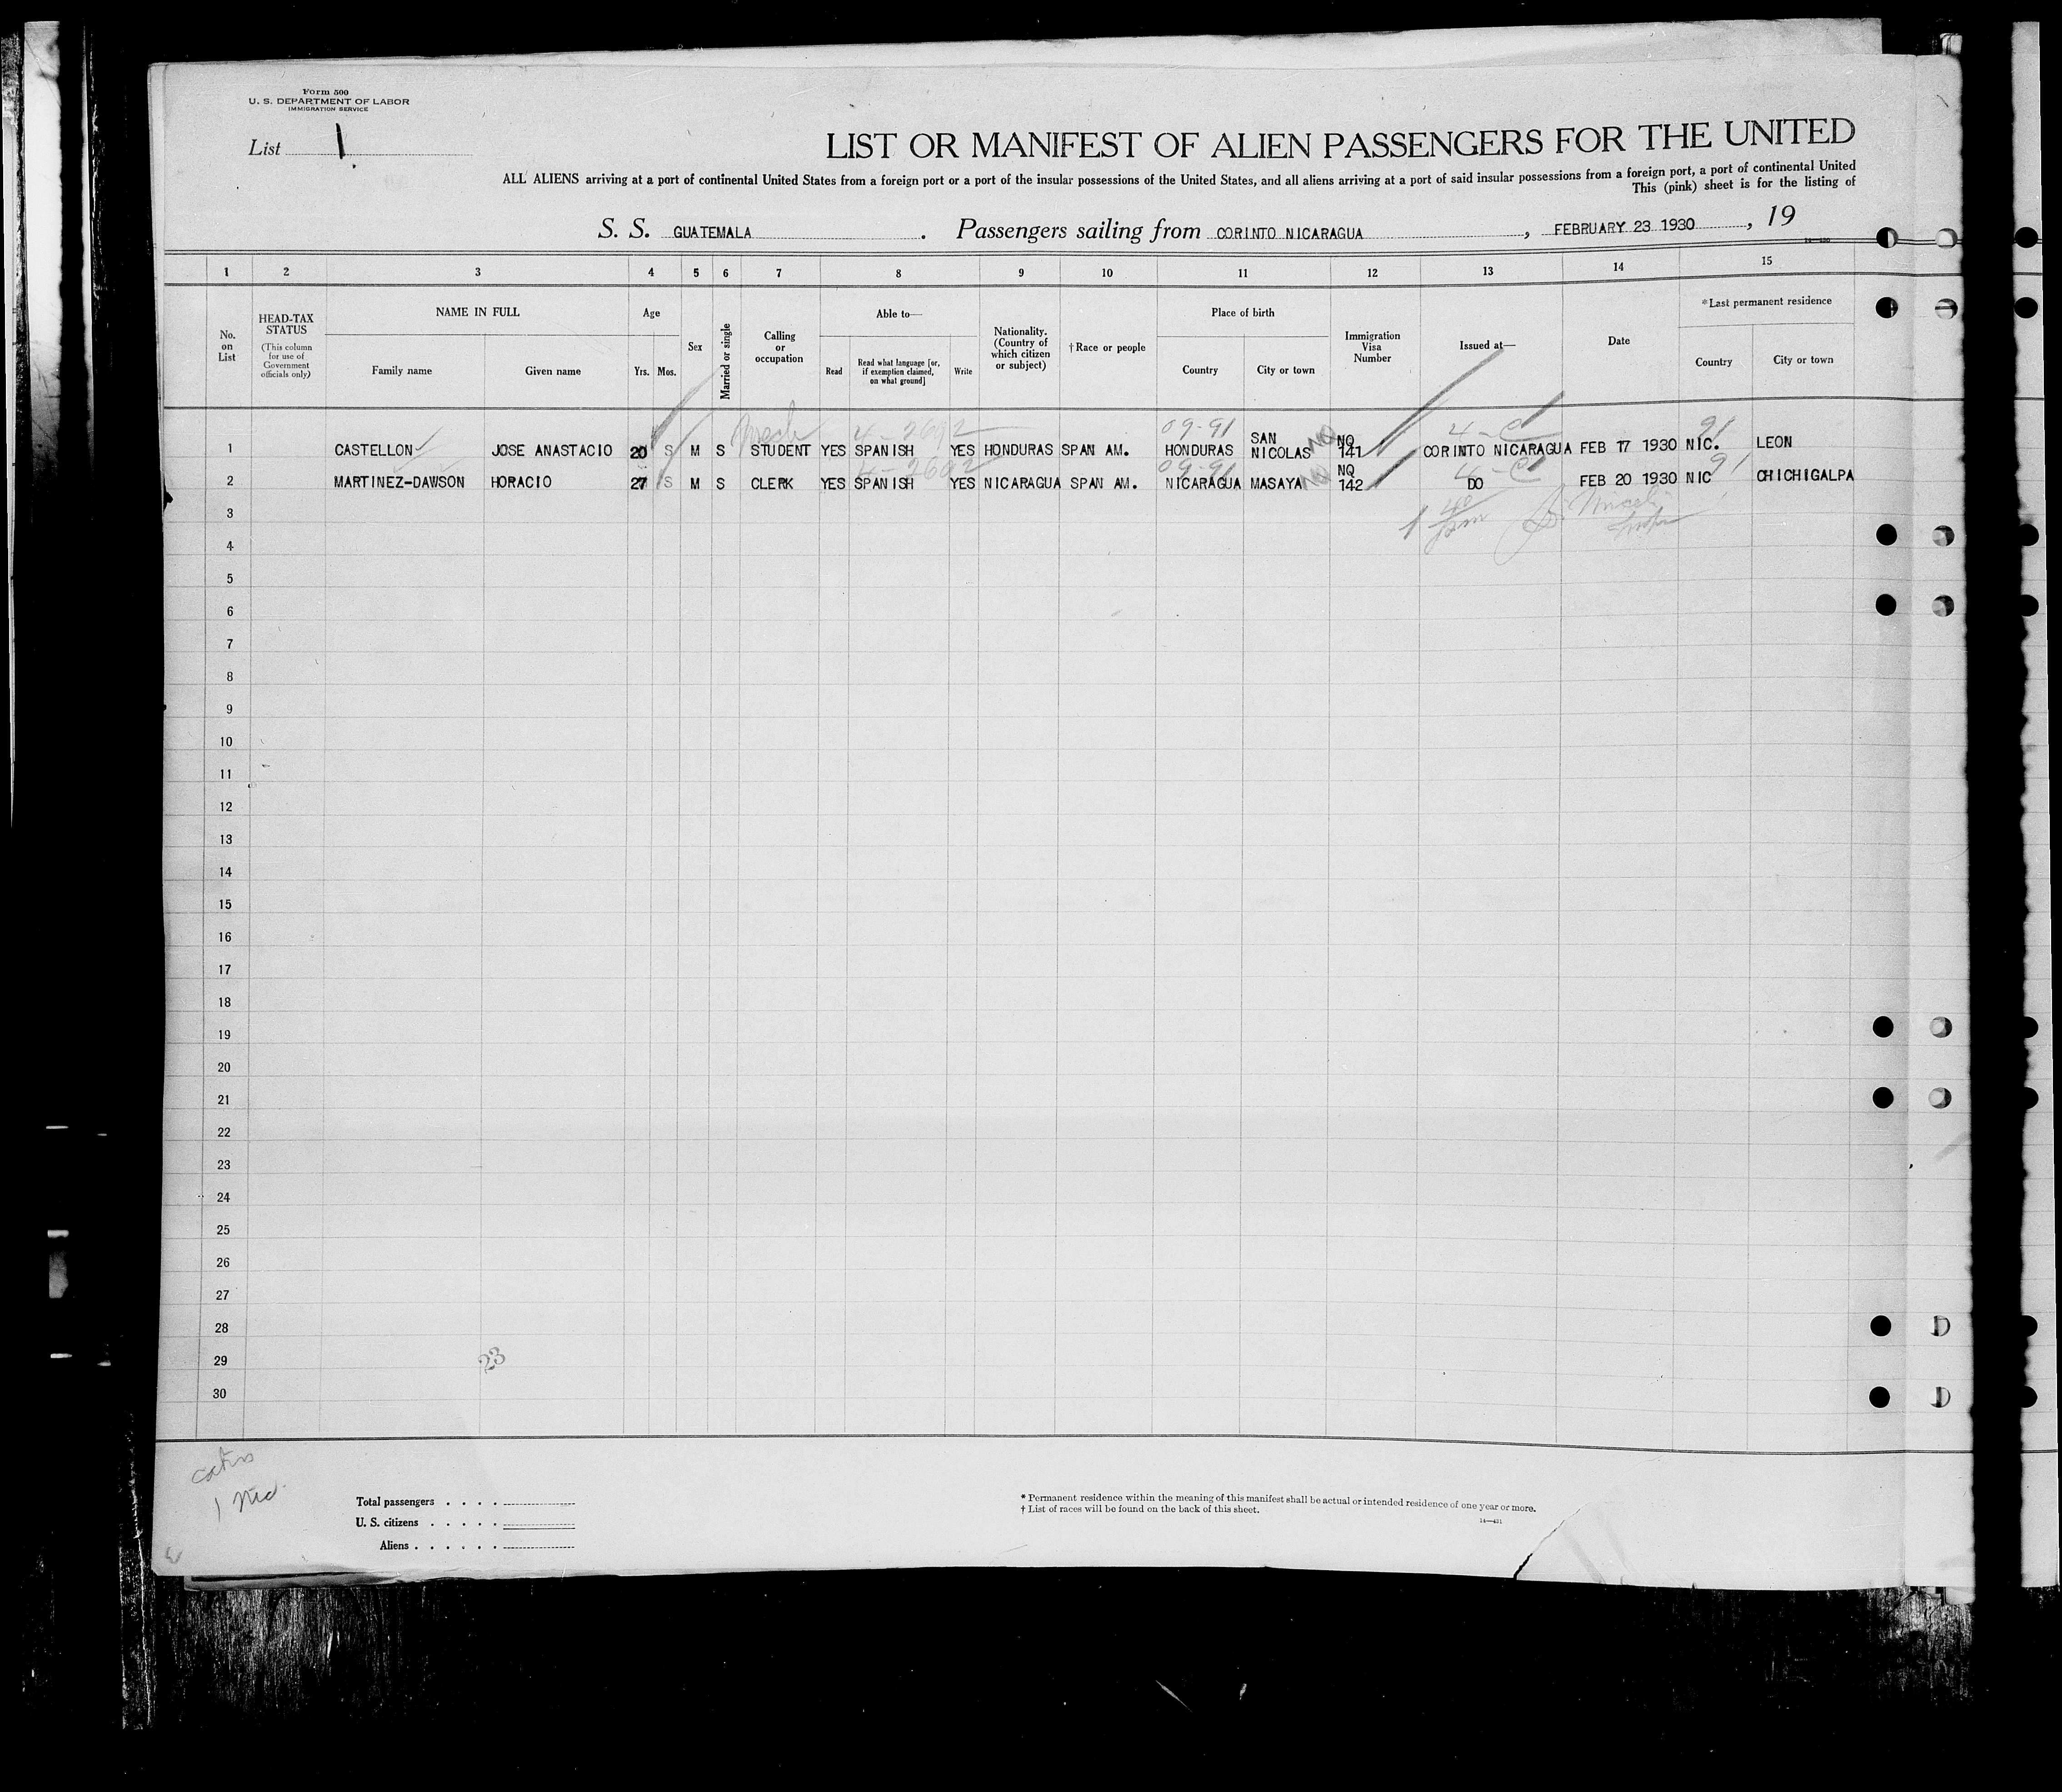 Form 500
U. S. DEPARTMENT OF LABOR
IMMIGRATION SERVICE
List 1
LIST OR MANIFEST OF ALIEN PASSENGERS FOR THE UNITED
ALL ALIENS arriving at a port of continental United States from a foreign port or a port of the insular possessions of the United States, and all aliens arriving at a port of said insular possessions from a foreign port, a port of continental United
This (pink) sheet is for the listing of
S. S. GUATEMALA . Passengers sailing from CORINTO NICARAGUA , FEBRUARY 23 1930 , 19
1 2 3 4 5 6 7 8 9 10 11 12 13 14 15
No. on List
HEAD-TAX STATUS
(This column for use of Government officials only)
NAME IN FULL
Family name
Given name
Age
Yrs. Mos.
Sex
Married or single
Calling or occupation
Able to—
Read
Read what language [or, if exemption claimed, on what ground]
Write
Nationality. (Country of which citizen or subject)
†Race or people
Place of birth
Country
City or town
Immigration Visa Number
Issued at—
Date
*Last permanent residence
Country
City or town
09-91 4-C 91
1 CASTELLON JOSE ANASTACIO 20 S M S STUDENT YES SPANISH YES HONDURAS SPAN AM. HONDURAS SAN NICOLAS NQ 141 CORINTO NICARAGUA FEB 17 1930 NIC. LEON
09-91 4-C 91
2 MARTINEZ-DAWSON HORACIO 27 S M S CLERK YES SPANISH YES NICARAGUA SPAN AM. NICARAGUA MASAYA NQ 142 DO FEB 20 1930 NIC CHICHIGALPA
3
4
5
6
7
8
9
10
11
12
13
14
15
16
17
18
19
20
21
22
23
24
25
26
27
28
29
23
30
Total passengers . . . .
U. S. citizens . . . . .
Aliens . . . . . .
* Permanent residence within the meaning of this manifest shall be actual or intended residence of one year or more.
† List of races will be found on the back of this sheet.